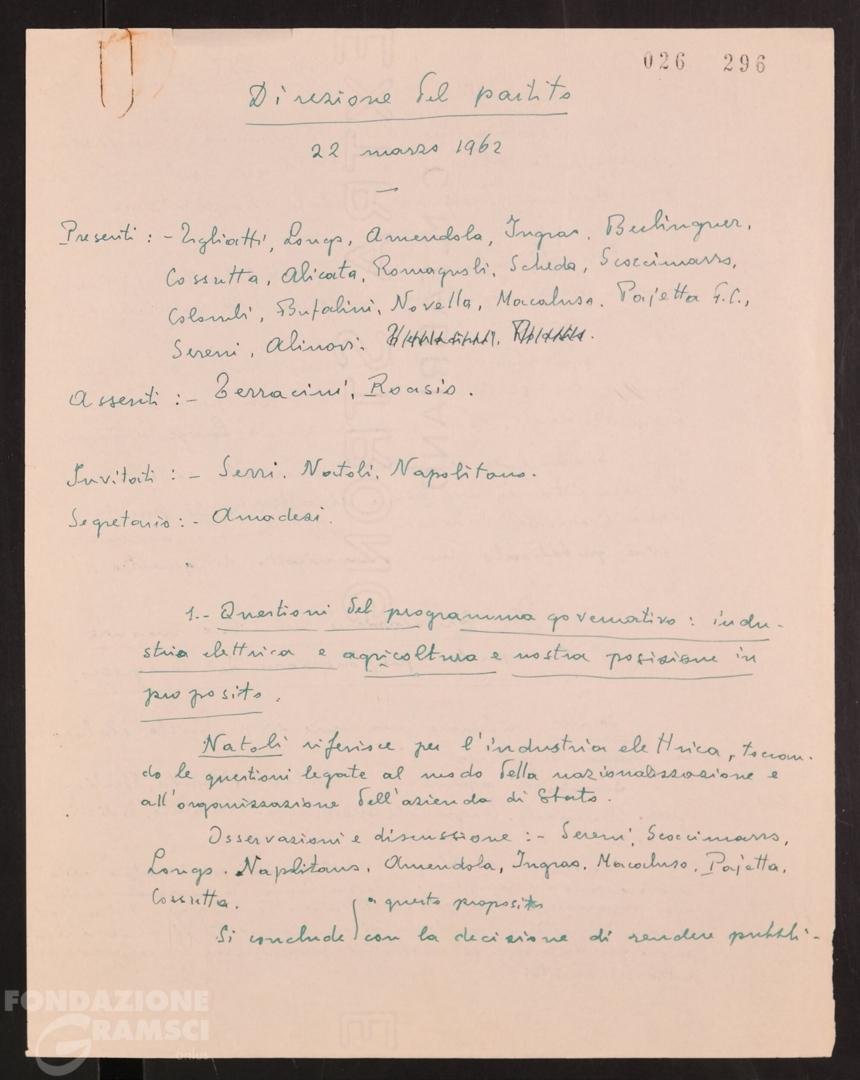 026 296
Direzione del partito
22 marzo 1962
Presenti : - Togliatti, Longo, Amendola, Ingrao, Berlinguer,
Cossutta, Alicata, Romagnoli, Scheda, Scoccimarro,
Colombi, Bufalini, Novella, Macaluso, Pajetta G.C.,
Sereni, Alinovi.
Assenti : - Terracini, Roasio.
Invitati : - Serri, Natoli, Napolitano.
Segretario : - Amadesi.
1.- Questioni del programma governativo : indu-
stria elettrica e agricoltura e nostra posizione in
proposito.
Natoli riferisce per l'industria elettrica, toccan-
do le questioni legate al modo della nazionalizzazione e
all'organizzazione dell'azienda di Stato.
Osservazioni e discussione : - Sereni, Scoccimarro,
Longo, Napolitano, Amendola, Ingrao, Macaluso, Pajetta,
Cossutta.
a questo proposito
Si conclude con la decisione di rendere pubbli-
FONDAZIONE
GRAMSCI
onlus